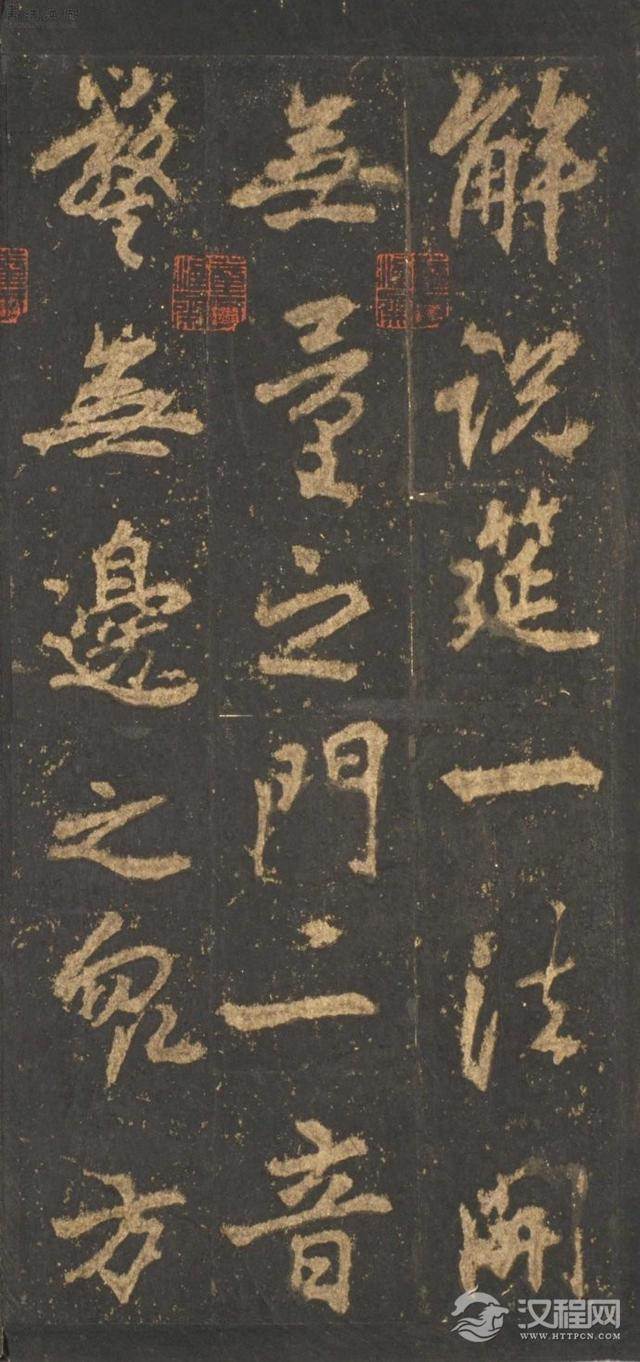 解說筵一法開
無量之門二音
警無邊之眾方
汉程网
WWW.HTTPCN.COM